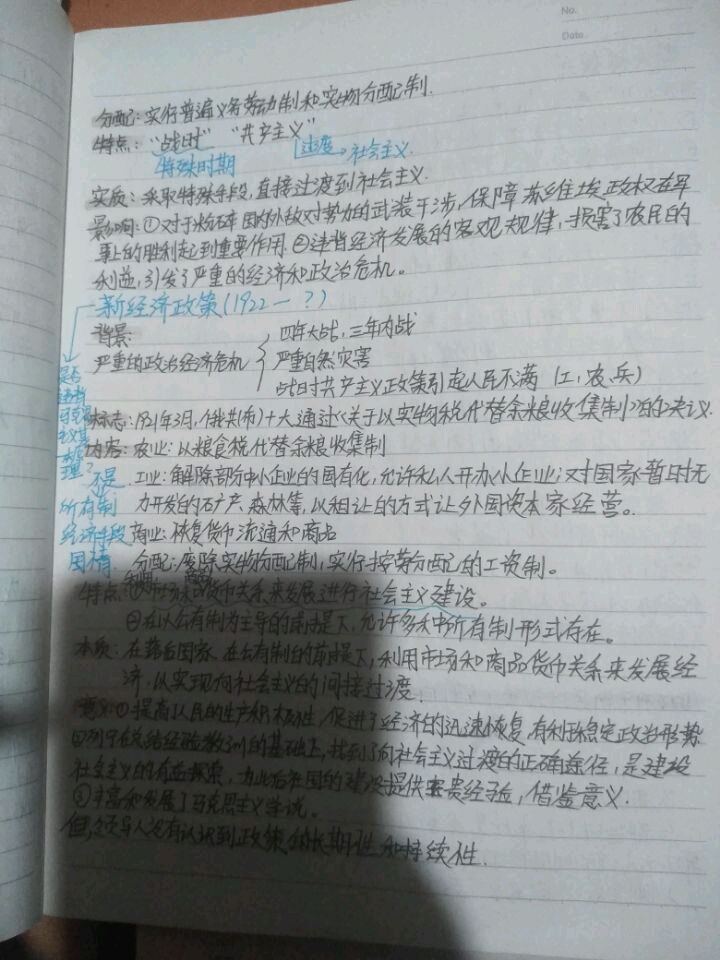 No.
Date.
分配:实行普遍义务劳动制和实物分配制.
特点:“战时” “共产主义”
特殊时期 过渡→社会主义.
实质:采取特殊手段,直接过渡到社会主义.
影响:①对于粉碎国内外敌对势力的武装干涉,保障苏维埃政权在军
事上的胜利起到重要作用.②违背经济发展的客观规律,损害了农民的
利益,引发了严重的经济和政治危机。
新经济政策(1922—?)
背景:
四年大战,三年内战
严重的政治经济危机
严重自然灾害
战时共产主义政策引起人民不满(工,农,兵)
是否
违背
马克思
主义基
本原
理?
标志:1921年3月,俄共(布)十大通过《关于以实物税代替余粮收集制》的决议.
内容:农业:以粮食税代替余粮收集制
不是.
工业:解除部分中小企业的国有化,允许私人开办小企业;对国家暂时无
所有制
力开发的矿产、森林等,以租让的方式让外国资本家经营。
经济手段
商业:恢复货币流通和商品
国情
分配:废除实物分配制,实行按劳分配的工资制。
特点:①市场和货币关系来发展进行社会主义建设。
②在以公有制为主导的前提下,允许多种所有制形式存在。
本质:在落后国家,在公有制的前提下,利用市场和商品货币关系来发展经
济,以实现向社会主义的间接过渡.
意义:①提高人民的生产积极性,促进了经济的迅速恢复,有利于稳定政治形势
②列宁在总结经验教训的基础上,找到了向社会主义过渡的正确途径,是建设
社会主义的有益探索,为此后社国的建设提供宝贵经验,借鉴意义.
③丰富和发展了马克思主义学说。
但,领导人没有认识到政策的长期性和持续性.